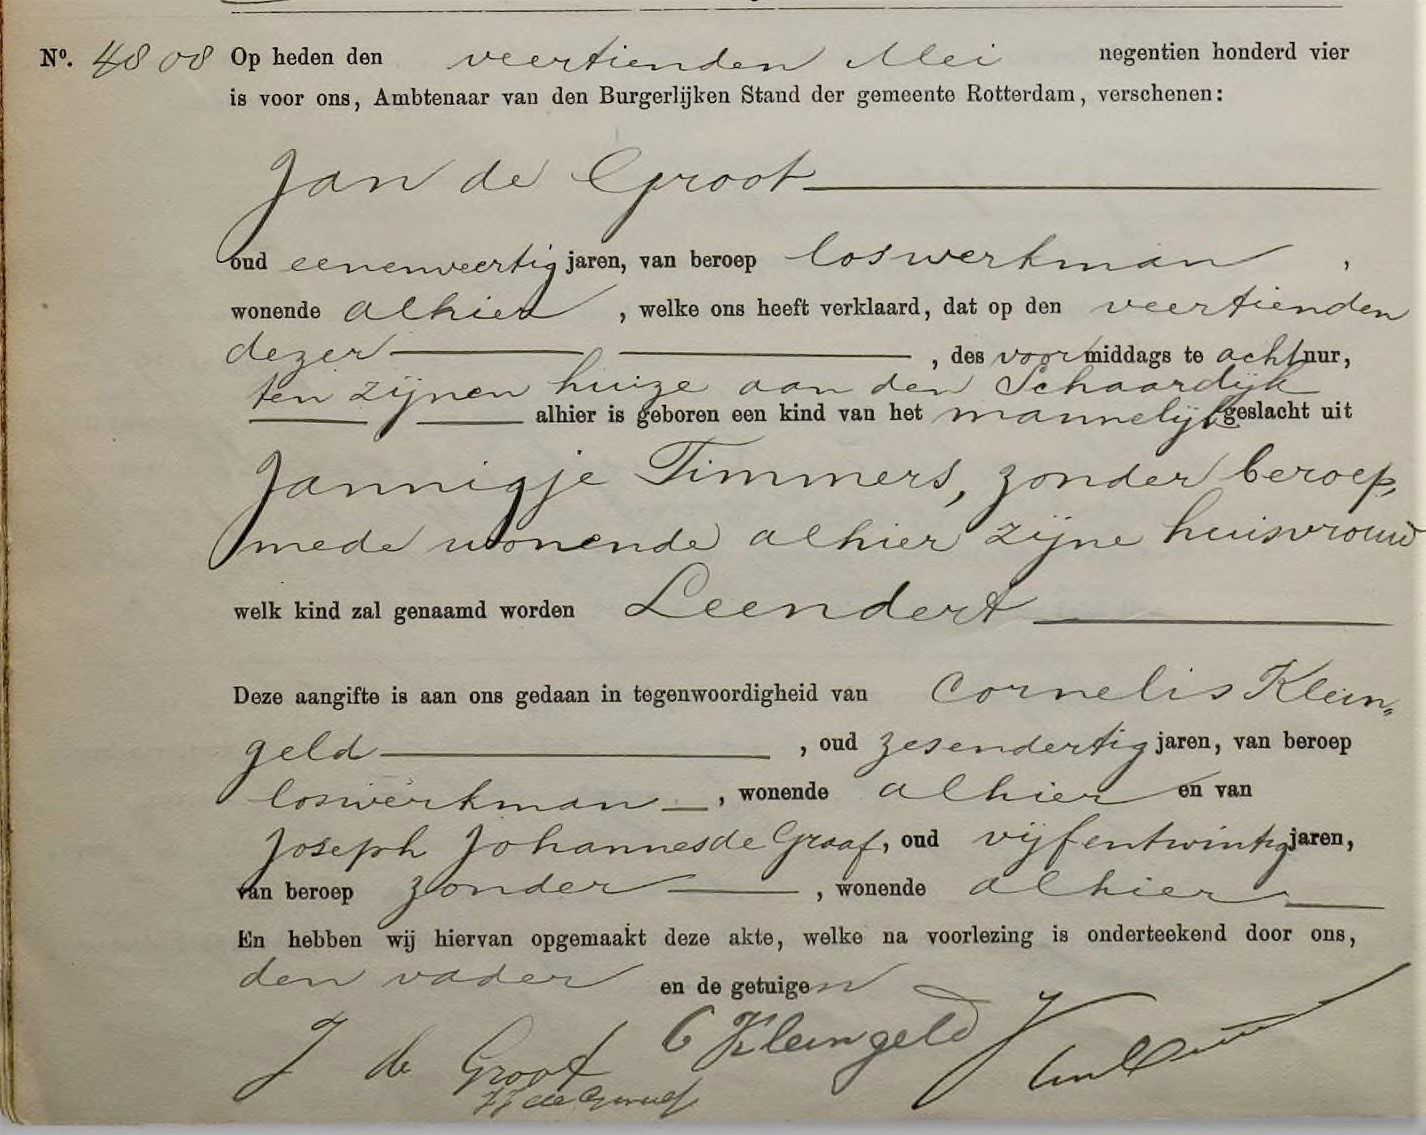 Nº. 4808 Op heden den veertienden Mei negentien honderd vier
is voor ons, Ambtenaar van den Burgerlijken Stand der gemeente Rotterdam, verschenen:
Jan de Groot
oud eenenveertig jaren, van beroep loswerkman,
wonende alhier, welke ons heeft verklaard, dat op den veertienden
dezer, des voormiddags te acht uur,
ten zijnen huize aan den Schaardijk
alhier is geboren een kind van het mannelijk geslacht uit
Jannigje Timmers, zonder beroep,
mede wonende alhier zijne huisvrouw
welk kind zal genaamd worden Leendert
Deze aangifte is aan ons gedaan in tegenwoordigheid van Cornelis Klein„
geld, oud zesendertig jaren, van beroep
loswerkman, wonende alhier en van
Joseph Johannes de Graaf, oud vijfentwintig jaren,
van beroep zonder, wonende alhier
En hebben wij hiervan opgemaakt deze akte, welke na voorlezing is onderteekend door ons,
den vader en de getuigen
J de Groot C Kleingeld
JJ de Graaf